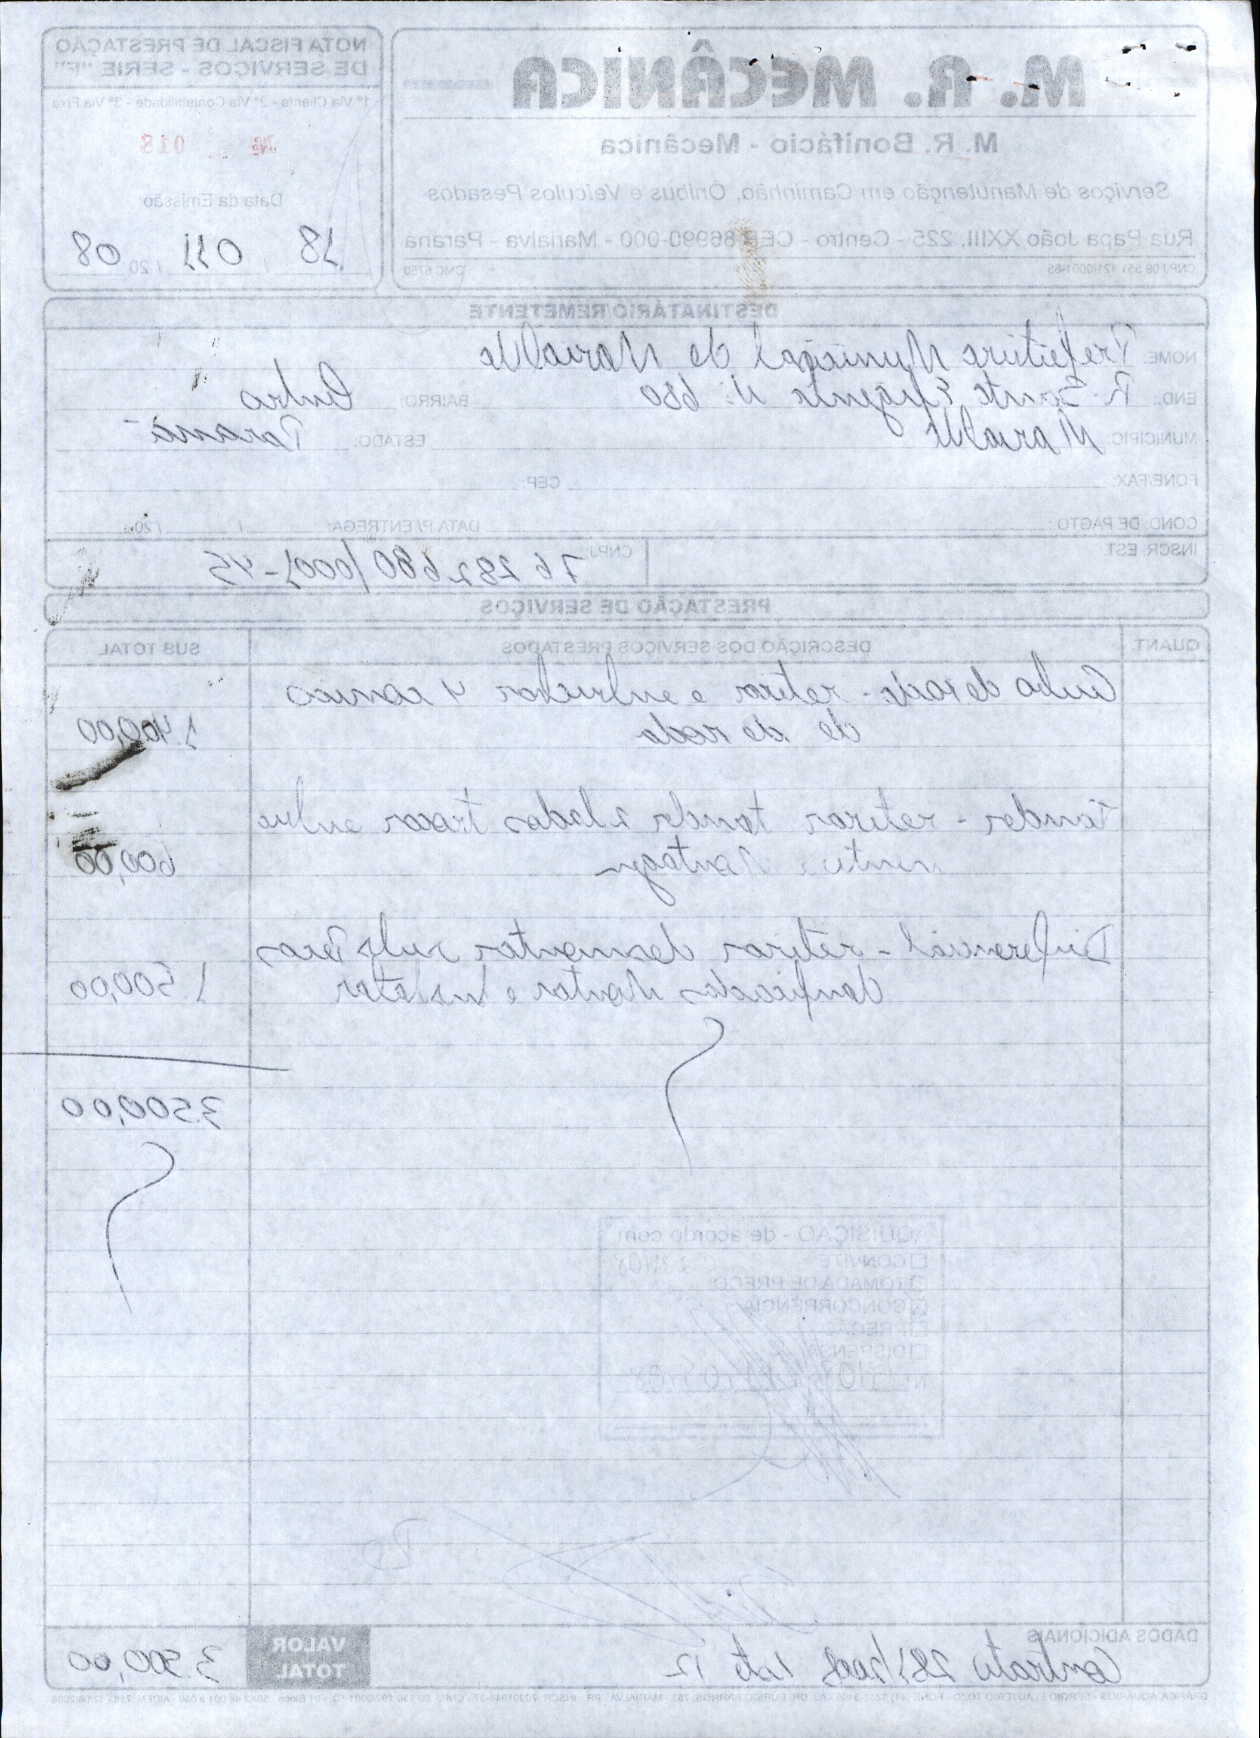 M. R. MECÂNICA
M. R. Bonifácio - Mecânica
Serviços de Manutenção em Caminhão, Ônibus e Veículos Pesados
Rua Papa João XXIII, 225 - Centro - CEP 86990-000 - Marialva - Paraná
NOTA FISCAL DE PRESTAÇÃO
DE SERVIÇOS - SERIE "F"
1ª Via Cliente - 2ª Via Contabilidade - 3ª Via Fixa
Nº 018
Data da Emissão
18 / 011 / 20 08
DESTINATÁRIO/REMETENTE
NOME: Prefeitura Municipal de Marialva
END.: R. Santa Efigenia N: 680 BAIRRO: Centro
MUNICÍPIO: Marialva ESTADO: Paraná
FONE/FAX: CEP:
COND. DE PAGTO: DATA P/ ENTREGA: / / 20
INSCR. EST. CNPJ 76 282 680/0001-45
PRESTAÇÃO DE SERVIÇOS
QUANT. DESCRIÇÃO DOS SERVIÇOS PRESTADOS SUB TOTAL
Cubo de roda - retirar e embuchar 4
de roda 1.400,00
Tander - retirar tander 2 lados trocar
Montagem 600,00
Diferencial - retirar desmontar subs Pecas
danificadas Montar e Instalar 1.500,00
3.500,00
AQUISIÇÃO - de acordo com
CONVITE
TOMADA DE PREÇO
CONCORRÊNCIA
PREGÃO
DISPENSA
DADOS ADICIONAIS
Contrato 281/2008 Lote 12
VALOR
TOTAL
3.500,00